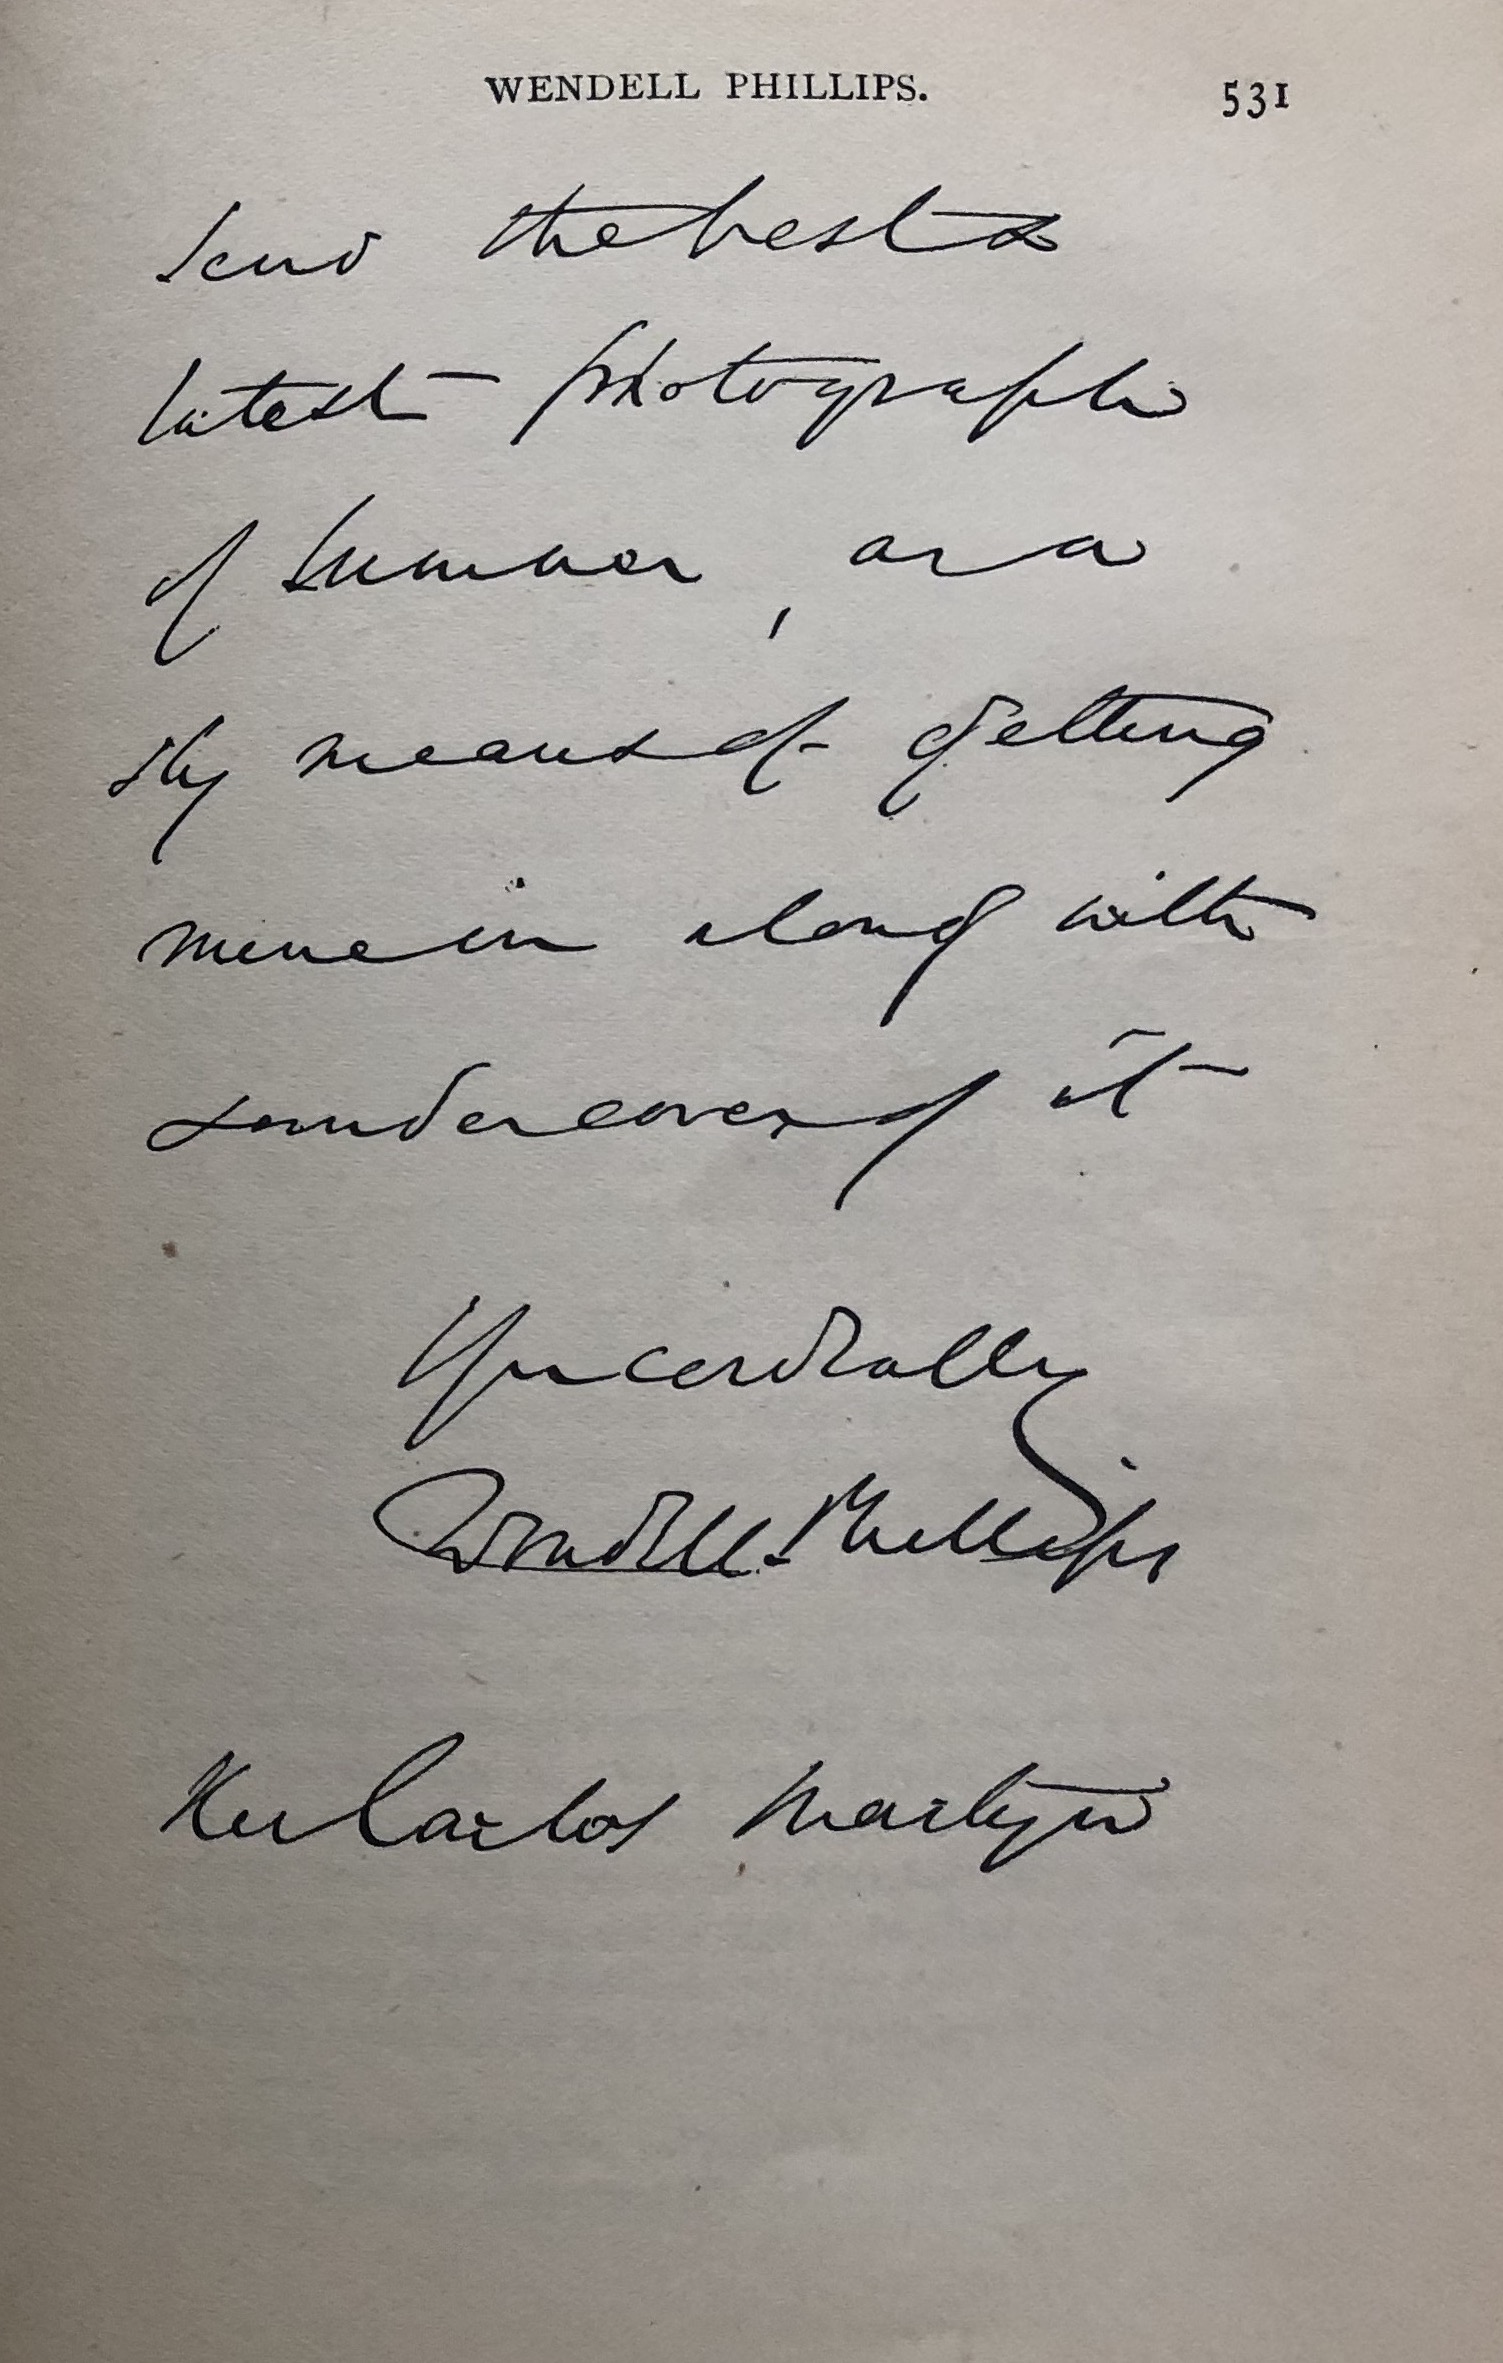 WENDELL PHILLIPS. 531
send the best &
latest photograph
of Sumner, as a
sly means of getting
mine in along with
& under cover of it
Yrs cordially
Wendell Phillips
Rev Carlos Martyn